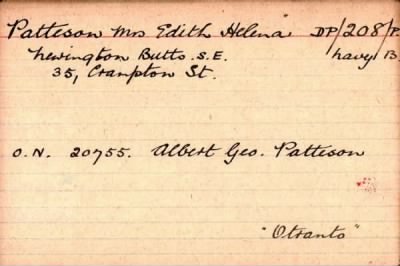 Patteson Mrs Edith Helena DP/208/P.
Newington Butts. S.E. Navy B.
35, Crampton St.
O.N. 20755. Albert Geo. Patteson
"Otranto"